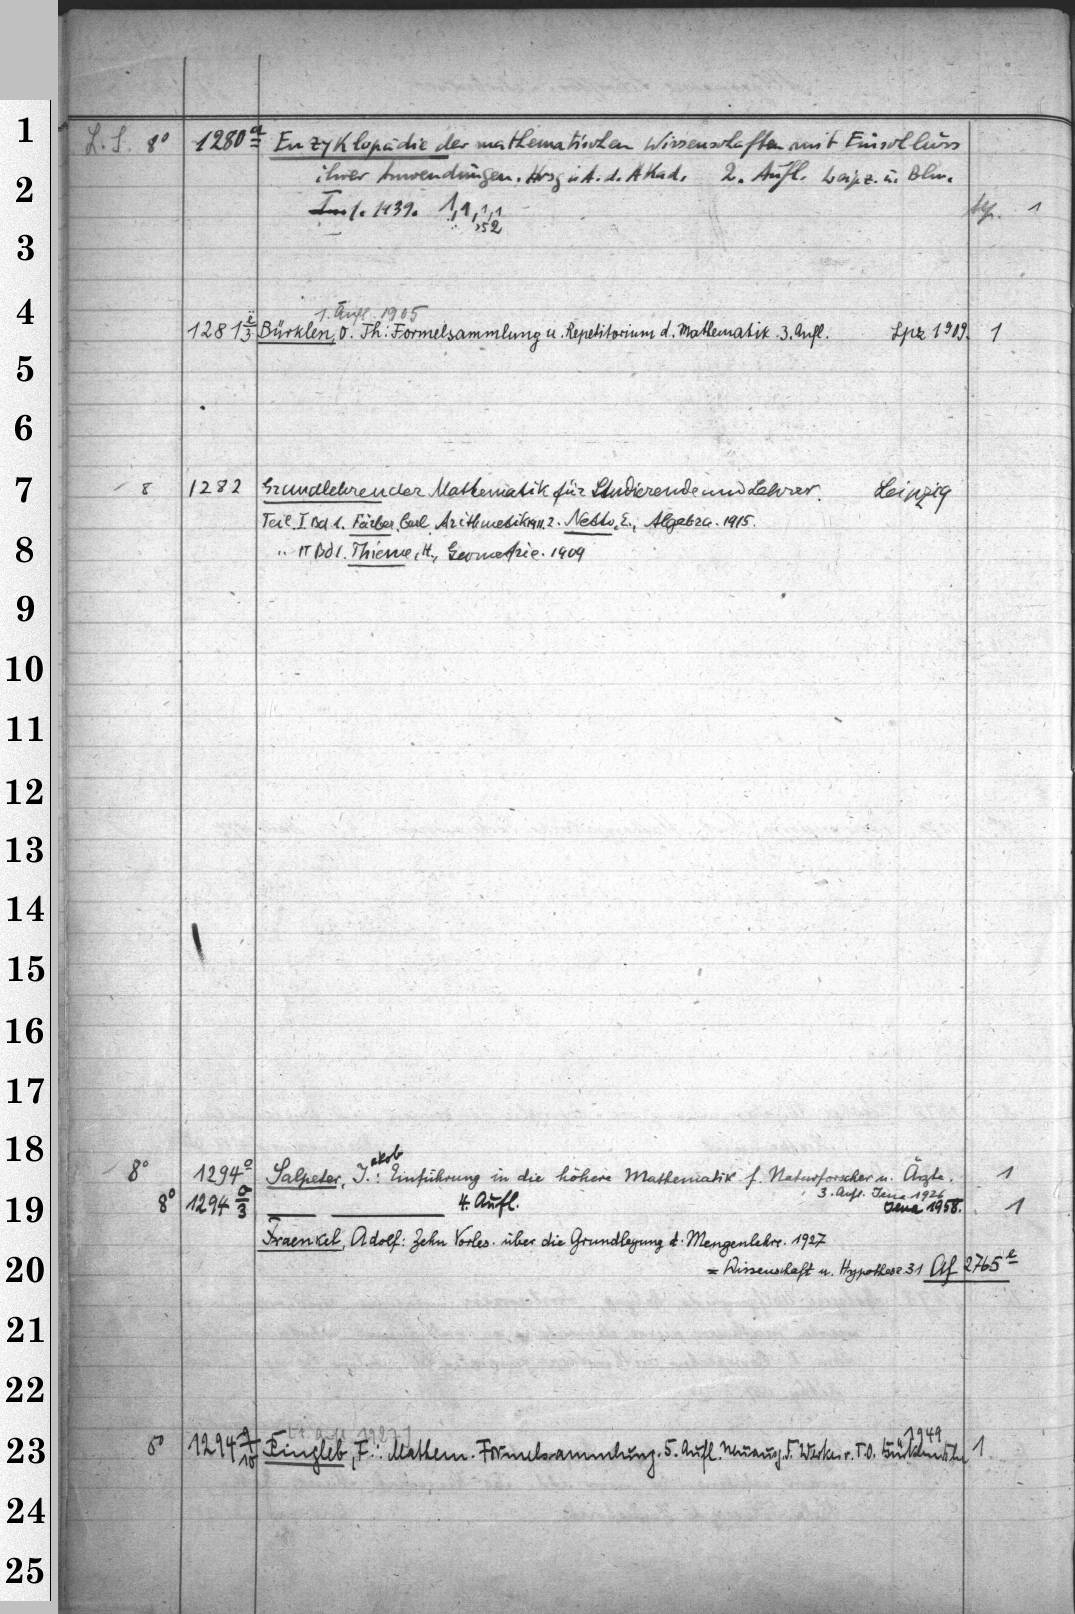 1
L. S. 8° 1280 a Enzyklopädie der mathematischen Wissenschaften mit Einschluss
2
ihrer Anwendungen. Hrsg i. A. d. Akad. 2. Aufl. Leipz. u. Bln.
1939. 1,1,1,1 1
3
4
1. Aufl. 1905
1281 i/3 Bürklen, O. Th: Formelsammlung u. Repetitorium d. Mathematik. 3. Aufl. Lpz 1909. 1
5
6
7
8 1282 Grundlehren der Mathematik für Studierende und Lehrer. Leipzig
Teil I Bd 1. Färber, Carl, Arithmetik 1911. 2. Netto, E., Algebra. 1915.
8
" II Bd 1. Thieme, H., Geometrie. 1909
9
10
11
12
13
14
15
16
17
18
8° 1294 o Salpeter, Jakob: Einführung in die höhere Mathematik f. Naturforscher u. Ärzte. 1
3. Aufl. Jena 1926
19
8° 1294 o/3 4. Aufl. Jena 1958. 1
Fraenkel, Adolf: Zehn Vorles. über die Grundlegung d. Mengenlehre. 1927
20
= Wissenschaft u. Hypothese 31 Af 2765 e
21
22
23
8° 1294 Ringleb, F.: Mathem. Formelsammlung. 5. Aufl. 1949 1
24
25